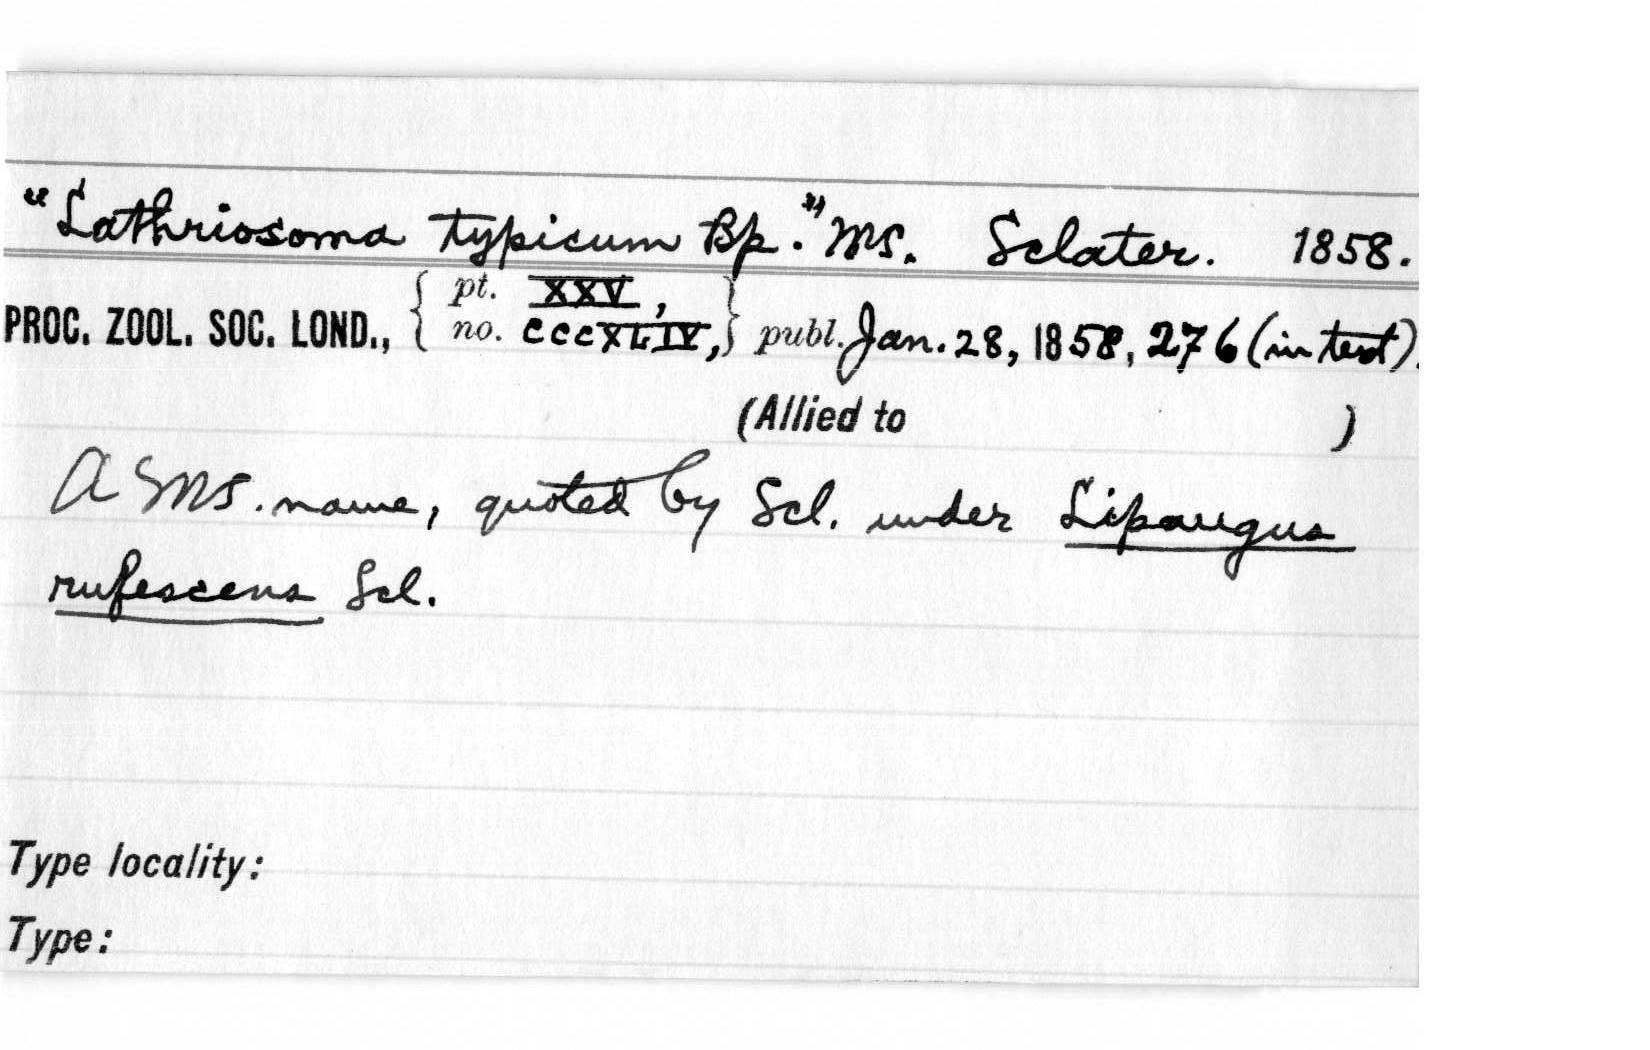 "Lathriosoma typicum Bp." MS. Sclater. 1858.
PROC. ZOOL. SOC. LOND., { pt. XXV, no. cccXLIV, } publ. Jan. 28, 1858, 276 (in text).
(Allied to )
A MS. name, quoted by Scl. under Lipaugus
rufescens Scl.
Type locality:
Type: